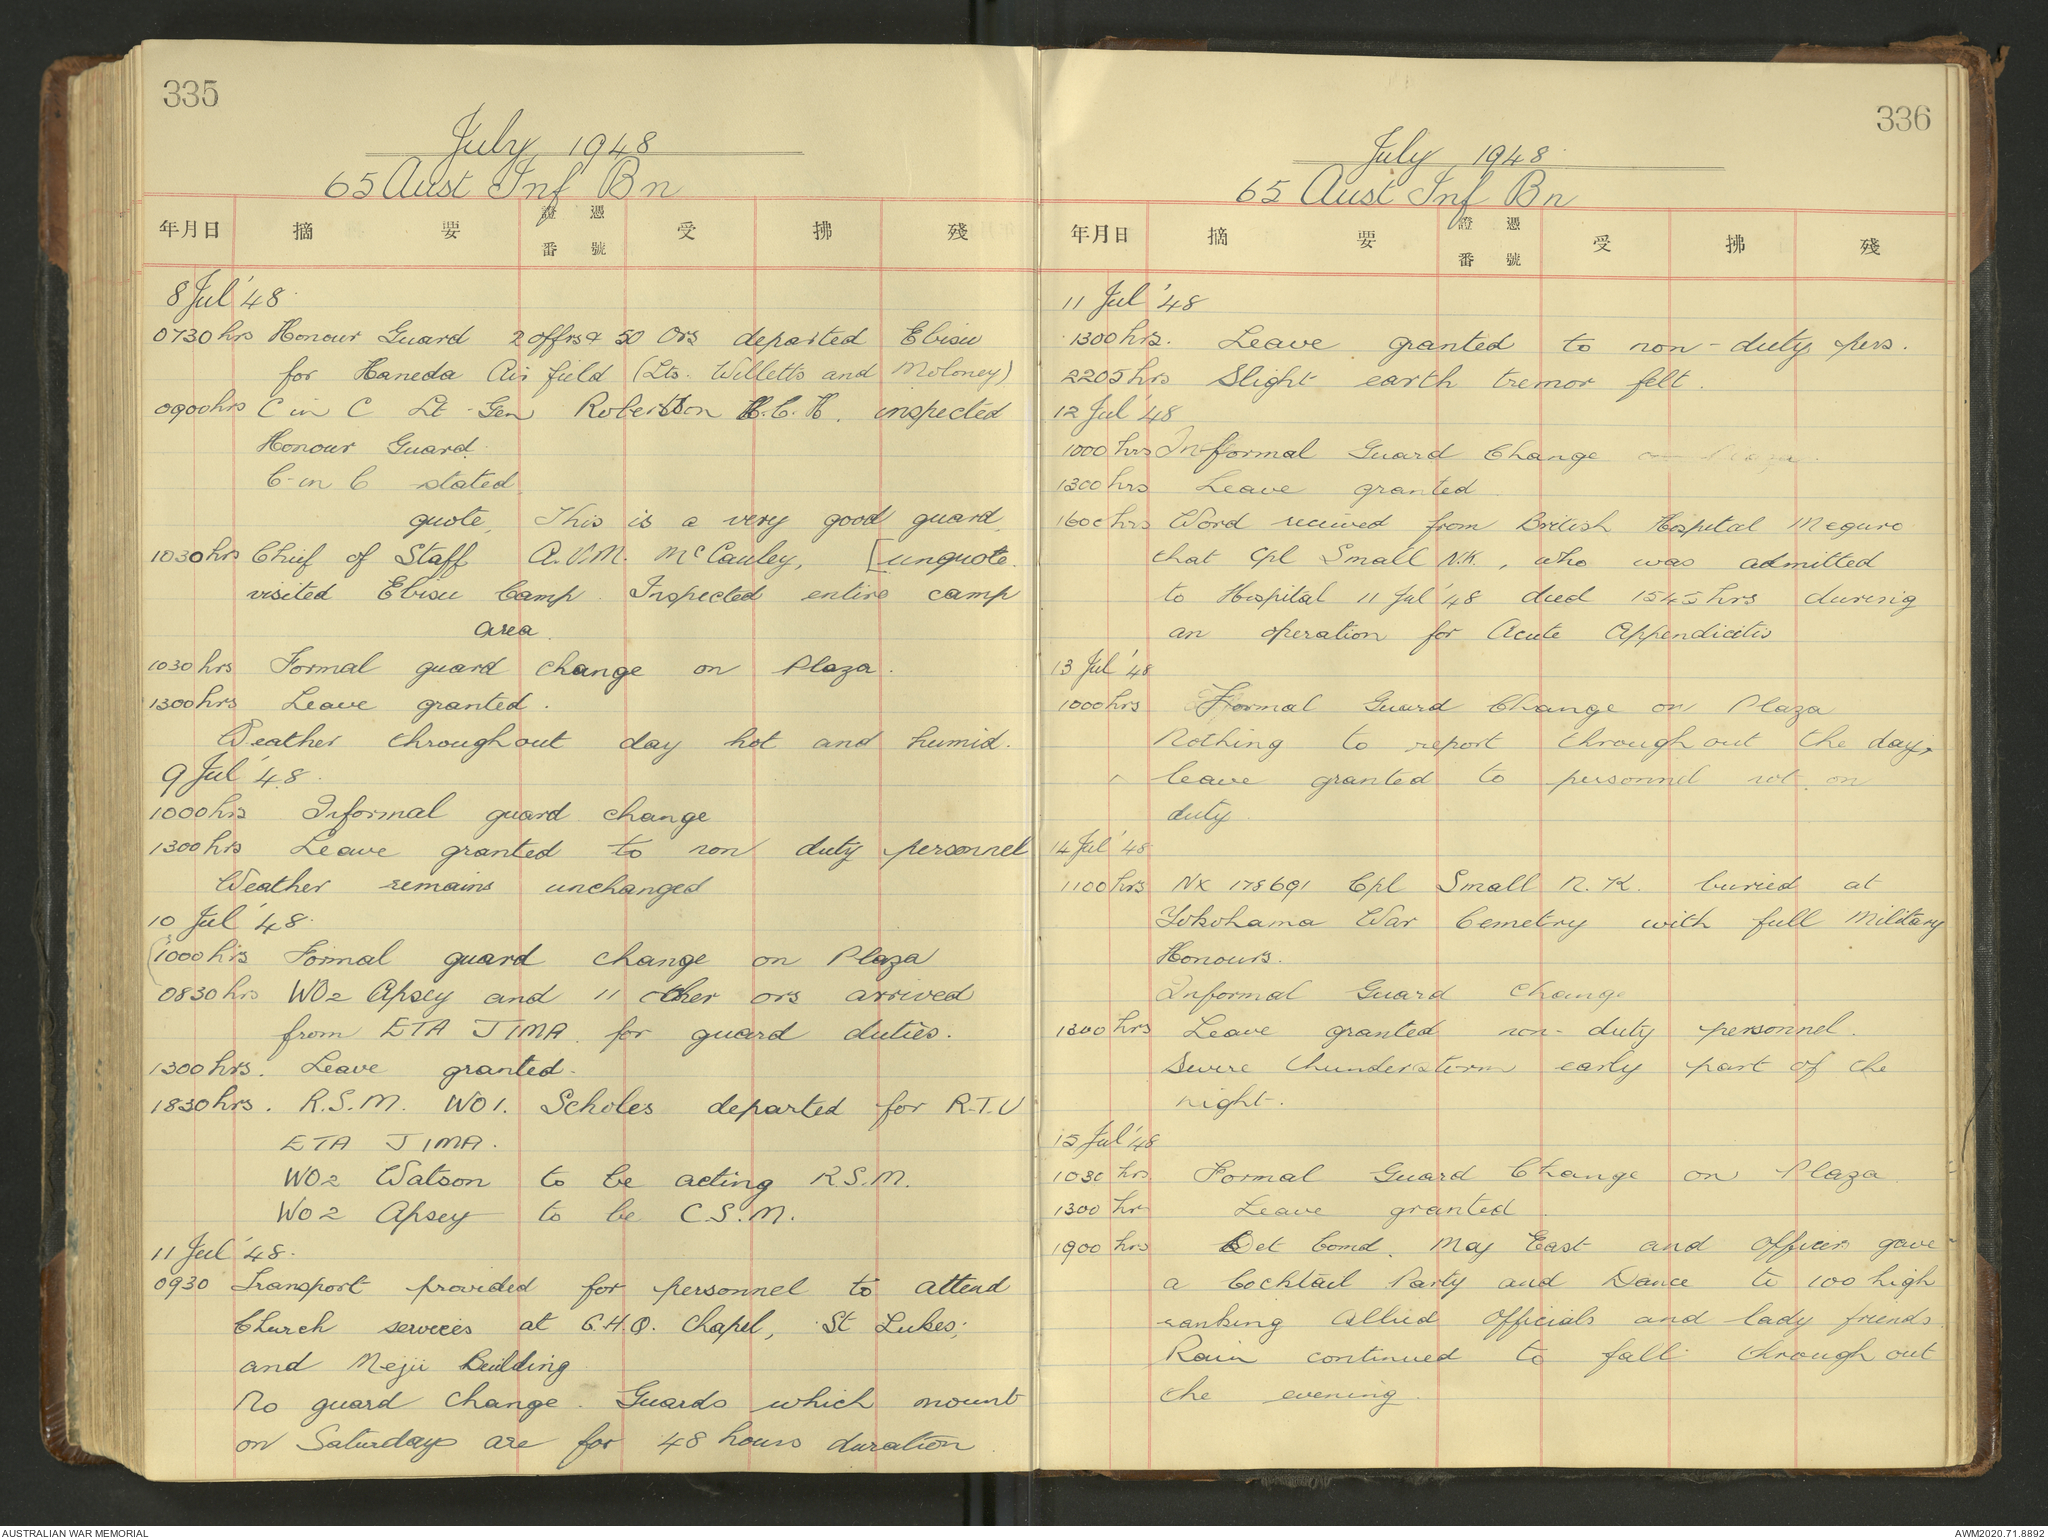 335
July 1948
65 Aust Inf Bn
年月日 摘要 證憑番號 受 拂 殘
8 Jul '48.
0730 hrs Honour Guard 2 offrs & 50 Ors departed Ebisu
for Haneda Air field (Lts. Willetts and Moloney)
0900 hrs C in C Lt Gen Robertson H.C.H. inspected
Honour Guard.
C-in C stated
quote, This is a very good guard.
1030 hrs Chief of Staff A.V.M. McCauley, [unquote.
visited Ebisu Camp. Inspected entire camp
area.
1030 hrs Formal guard change on Plaza.
1300 hrs Leave granted.
Weather throughout day hot and humid.
9 Jul '48.
1000 hrs Informal guard change
1300 hrs Leave granted to non duty personnel
Weather remains unchanged
10 Jul '48.
(1000 hrs Formal guard change on Plaza
0830 hrs WO2 Apsey and 11 other ors arrived
from ETA JIMA. for guard duties.
1300 hrs. Leave granted.
1830 hrs. R.S.M. WO1. Scholes departed for R.T.U
ETA JIMA.
WO2 Watson to be acting R.S.M.
WO2 Apsey to be C.S.M.
11 Jul '48.
0930 Transport provided for personnel to attend
Church services at G.H.Q. Chapel, St Lukes;
and Meji Building
No guard change. Guards which mount
on Saturdays are for 48 hours duration.
336
July 1948.
65 Aust Inf Bn
年月日 摘要 證憑番號 受 拂 殘
11 Jul '48
1300 hrs. Leave granted to non-duty pers.
2205 hrs Slight earth tremor felt.
12 Jul '48
1000 hrs Informal Guard Change on Plaza
1300 hrs Leave granted.
1600 hrs Word received from British Hospital Meguro
that Cpl Small N.K., who was admitted
to Hospital 11 Jul '48 died 1545 hrs during
an operation for Acute Appendicitis
13 Jul '48
1000 hrs Formal Guard Change on Plaza
Nothing to report throughout the day,
leave granted to personnel not on
duty.
14 Jul '48
1100 hrs NX 178691 Cpl Small N.K. buried at
Yokohama War Cemetry with full Military
Honours.
Informal Guard Change
1300 hrs Leave granted non-duty personnel.
Severe thunderstorm early part of the
night.
15 Jul '48
1030 hrs Formal Guard Change on Plaza
1300 hr Leave granted.
1900 hrs Det Comd. Maj East and officers gave
a Cocktail Party and Dance to 100 high
ranking Allied officials and lady friends.
Rain continued to fall throughout
the evening.
AUSTRALIAN WAR MEMORIAL
AWM2020.71.8892